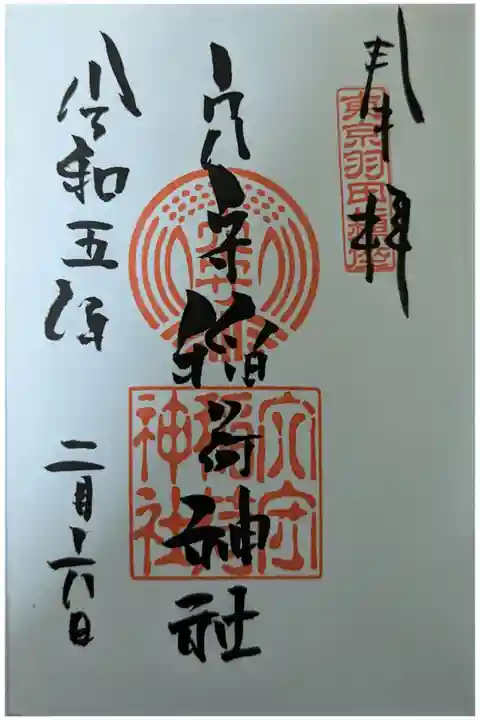 奉拝
東京羽田鎮座
穴守稲荷神社
穴守
稲荷
神社
令和五年 二月十六日